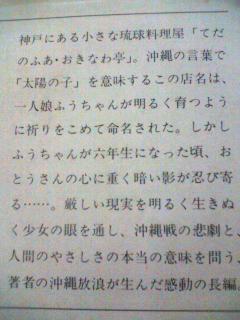 神戸にある小さな琉球料理屋「てだ
のふあ・おきなわ亭」。沖縄の言葉で
「太陽の子」を意味するこの店名は、
一人娘ふうちゃんが明るく育つよう
に祈りをこめて命名された。しかし
ふうちゃんが六年生になった頃、お
とうさんの心に重く暗い影が忍び寄
る……。厳しい現実を明るく生きぬ
く少女の眼を通し、沖縄戦の悲劇と、
人間のやさしさの本当の意味を問う、
著者の沖縄放浪が生んだ感動の長編。